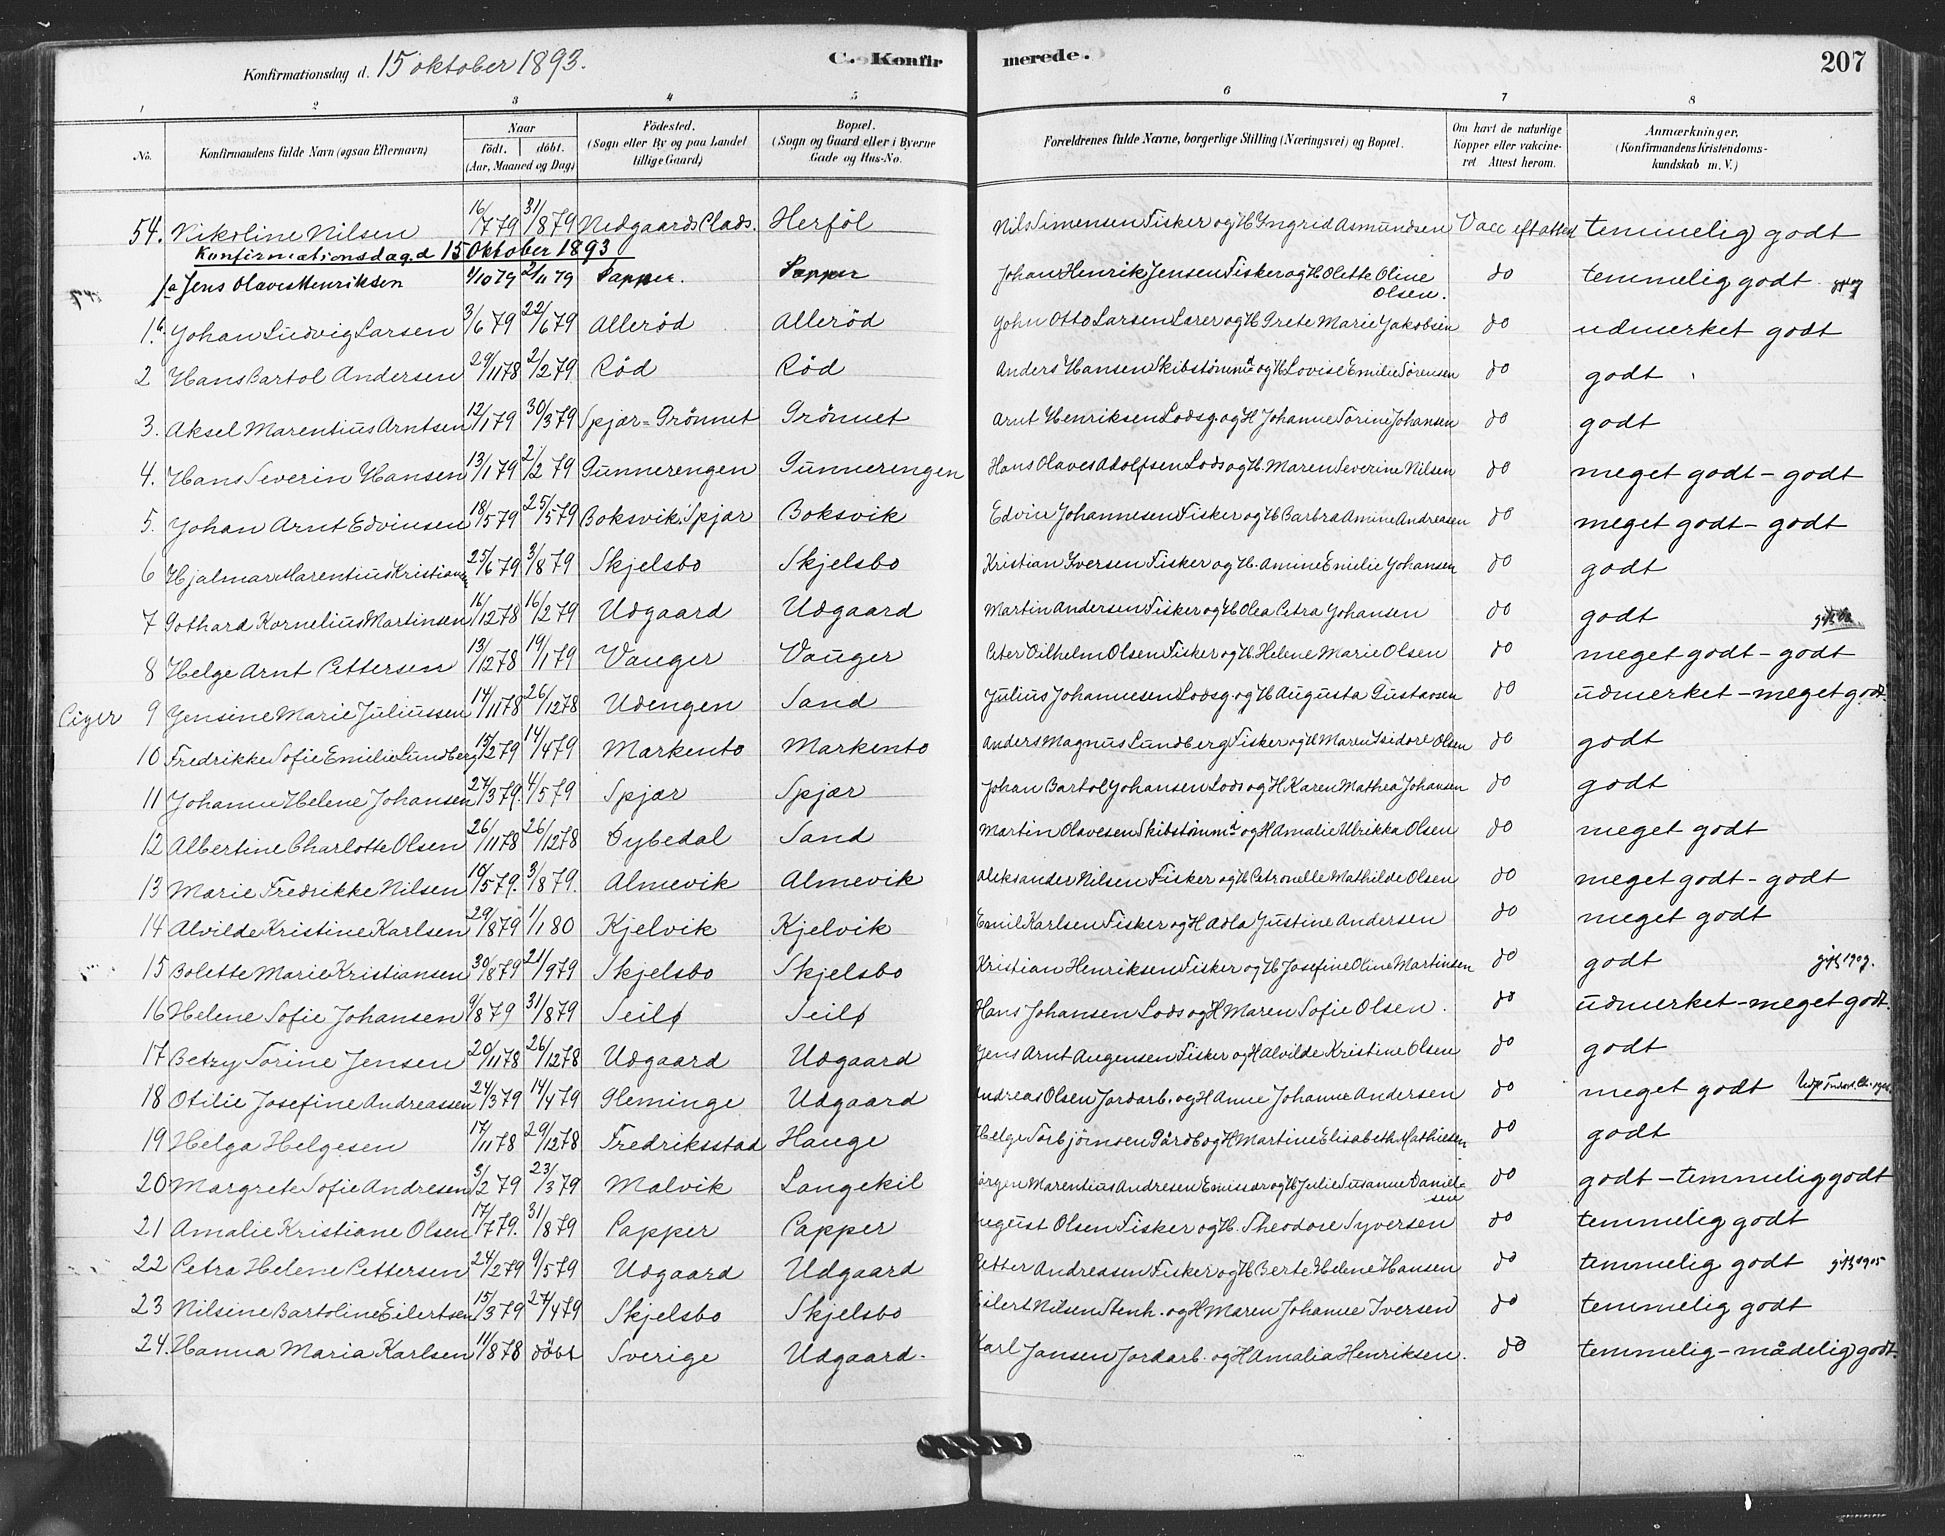 Konfirmationsdag d. 15 oktober 1893. C. Konfirmerede. 207
1 2 3 4 5 6 7 8
No. Konfirmandens fulde Navn (ogsaa Efternavn) Naar født. døbt. (Aar, Maaned og Dag) Fødested. (Sogn eller By og paa Landet tillige Gaard) Bopæl. (Sogn og Gaard eller i Byerne Gade og Hus-No. Forældrenes fulde Navne, borgerlige Stilling (Næringsvei) og Bopæl. Om havt de naturlige Kopper eller vakcineret Attest herom. Anmærkninger. (Konfirmandens Kristendomskundskab m. V.)
54. Nikoline Nilsen 16/7 79 31/8 79 Nedgaards Plads. Herföl Nils Simensen Fisker og H Ingrid Asmundsen Vacc eft attest temmelig godt
Konfirmationsdag d 15 Oktober 1893
1a Jens Olaves Henriksen 1/10 79 2/11 79 Papper. Papper Johan Henrik Jensen Fisker og H Olette Oline Olsen. do temmelig godt
1b. Johan Ludvig Larsen 3/6 79 22/6 79 Alleröd Alleröd John Otto Larsen Lærer og H Grete Marie Jakobsen do udmerket godt
2 Hans Bartol Andersen 29/11 78 2/2 79 Röd Röd Anders Hansen Skibstömmd og H Lovise Emilie Sörensen do godt
3. Aksel Marentius Arntsen 12/1 79 30/3 79 Spjær=Grönnet Grönnet Arnt Henriksen Lodsg. og H Johanne Torine Johansen do godt
4. Hans Severin Hansen 13/1 79 2/2 79 Gunnerengen Gunnerengen Hans Olaves Adolfsen Lods og H. Maren Severine Nilsen do meget godt - godt
5. Johan Arnt Edvinsen 18/5 79 25/5 79 Boksvik, Spjær Boksvik Edvin Johannesen Fisker og H Barbra Amine Andreasen do meget godt - godt
6 Hjalmar Marentius Kristiansen 25/6 79 3/8 79 Skjelsbo Skjelsbo Kristian Iversen Fisker og H. Amine Emilie Johansen do godt
7 Gothard Kornelius Martinsen 16/12 78 16/2 79 Udgaard Udgaard Martin Andersen Fisker og H Olea Petra Johansen do godt
8 Helge Arnt Pettersen 13/12 78 19/1 79 Vauger Vauger Peter Vilhelm Olsen Fisker og H Helene Marie Olsen do meget godt - godt
9 Jensine Marie Juliussen 14/11 78 26/12 78 Udengen Sand Julius Johannesen Lodsg. og H Augusta Gustavsen do udmerket - meget godt.
10 Fredrikke Sofie Emilie Lundberg 15/2 79 14/4 79 Markento Markento Anders Magnus Lundberg Fisker og H Maren Isidore Olsen do godt
11 Johanne Helene Johansen 27/3 79. 4/5 79 Spjær Spjær Johan Bartol Johansen Lods og H Karen Mathea Johansen do godt
12 Albertine Charlotte Olsen 26/11 78 26/12 78 Dybedal Sand Martin Olavesen Skibstömmd og H Amalie Ulrikka Olsen do meget godt
13 Marie Fredrikke Nilsen 19/5 79. 3/8 79. Almevik Almevik Aleksander Nilsen Fisker og H Petronelle Mathilde Olsen do meget godt - godt
14 Alvilde Kristine Karlsen 29/8 79 1/1 80 Kjelvik Kjelvik Emil Karlsen Fisker og H Adla Justine Andersen do meget godt
15 Bolette Marie Kristiansen 30/8 79 21/9 79 Skjelsbo Skjelsbo Kristian Henriksen Fisker og H Josefine Oline Martinsen do godt gift 1909.
16 Helene Sofie Johansen 9/8 79 31/8 79 Seilø Seilø Hans Johansen Lods og H Maren Sofie Olsen. do udmerket - meget godt.
17 Betzy Torine Jensen 20/11 78 26/12 78 Udgaard Udgaard Jens Arnt Augensen Fisker og H Alvilde Kristine Olsen do godt
18 Otilie Josefine Andreassen 24/3 79 14/4 79 Gleminge Udgaard Andreas Olsen Jordarb. og H Anne Johanne Andersen do meget godt
19 Helga Helgesen 17/11 78 29/12 78 Fredriksstad Hauge Helge Torbjörnsen Gårdb og H Martine Elisabeth Mathiesen do godt
20 Margrete Sofie Andresen 3/2 79 23/3 79 Malvik Langekil Jörgen Marentius Andresen Emissær og H Julie Susanne Danielsen do godt - temmelig godt
21 Amalie Kristiane Olsen 17/7 79. 31/8 79 Papper Papper August Olsen Fisker og H. Theodore Syversen do temmelig godt
22 Petra Helene Pettersen 24/2 79 9/5 79 Udgaard Udgaard Petter Andreasen Fisker og H Berte Helene Hansen do temmelig godt gift 1905
23 Nilsine Bartoline Eilertsen 15/3 79 27/4 79 Skjelsbo Skjelsbo Eilert Nilsen Stenh. og H Maren Johanne Iversen do temmelig godt
24. Hanna Maria Karlsen 11/8 78 döbt Sverige Udgaard. Karl Jansen Jordarb. og H Amalia Henriksen. do temmelig - mådelig godt.